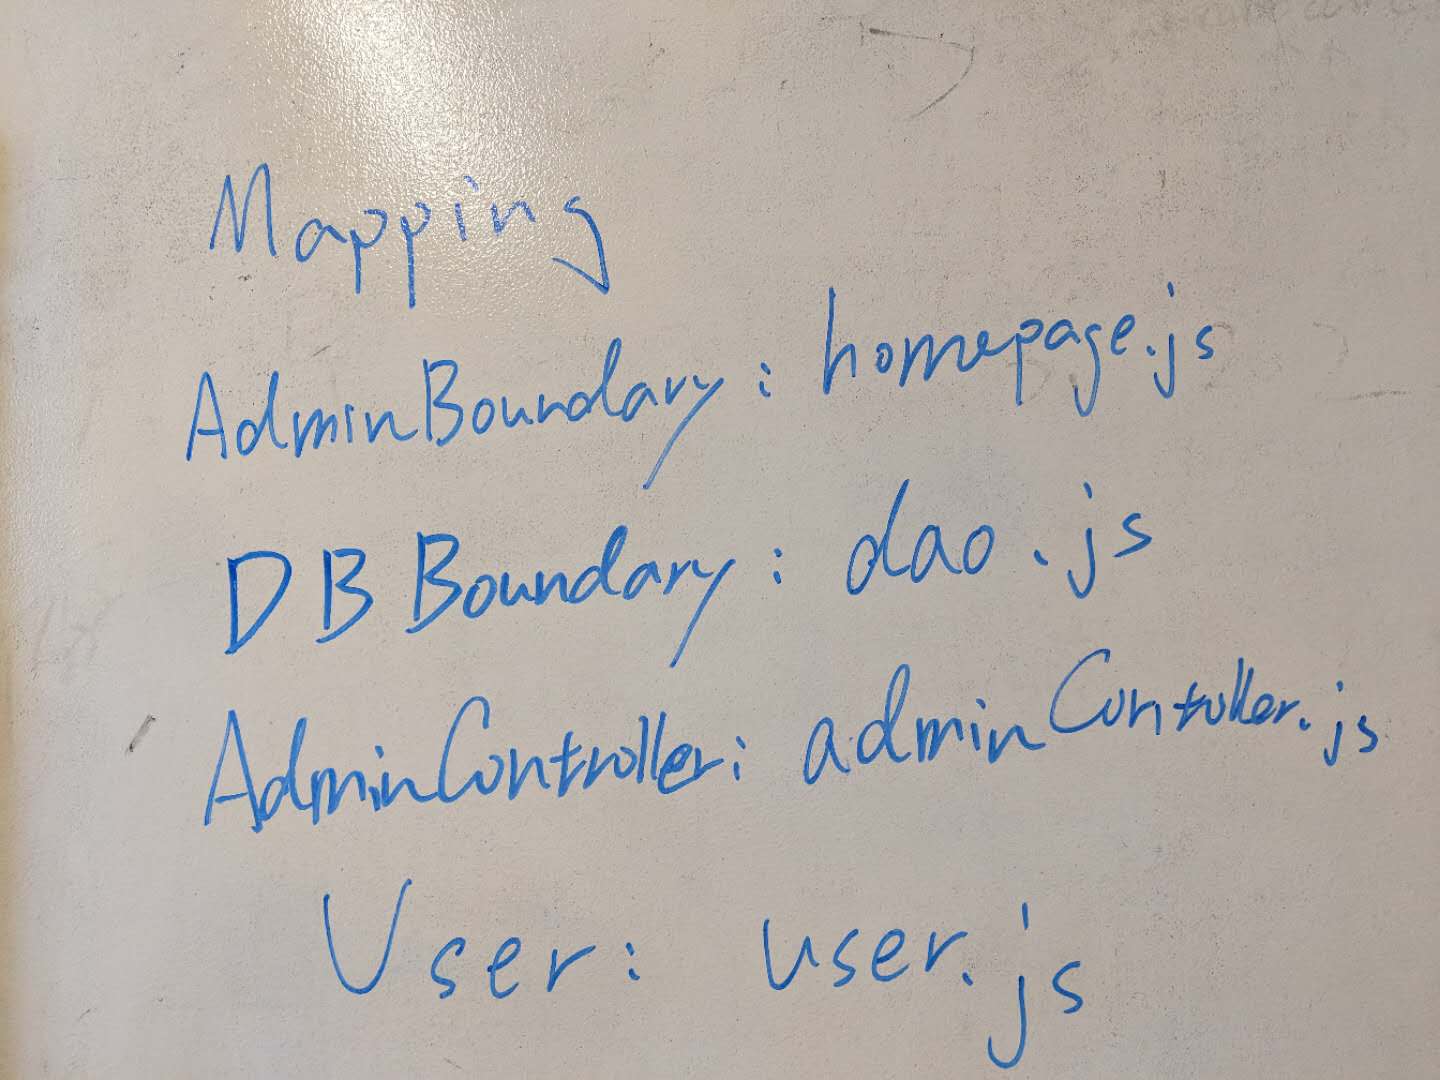 Mapping
AdminBoundary: homepage.js
DB Boundary: dao.js
AdminController: adminController.js
User: user.js